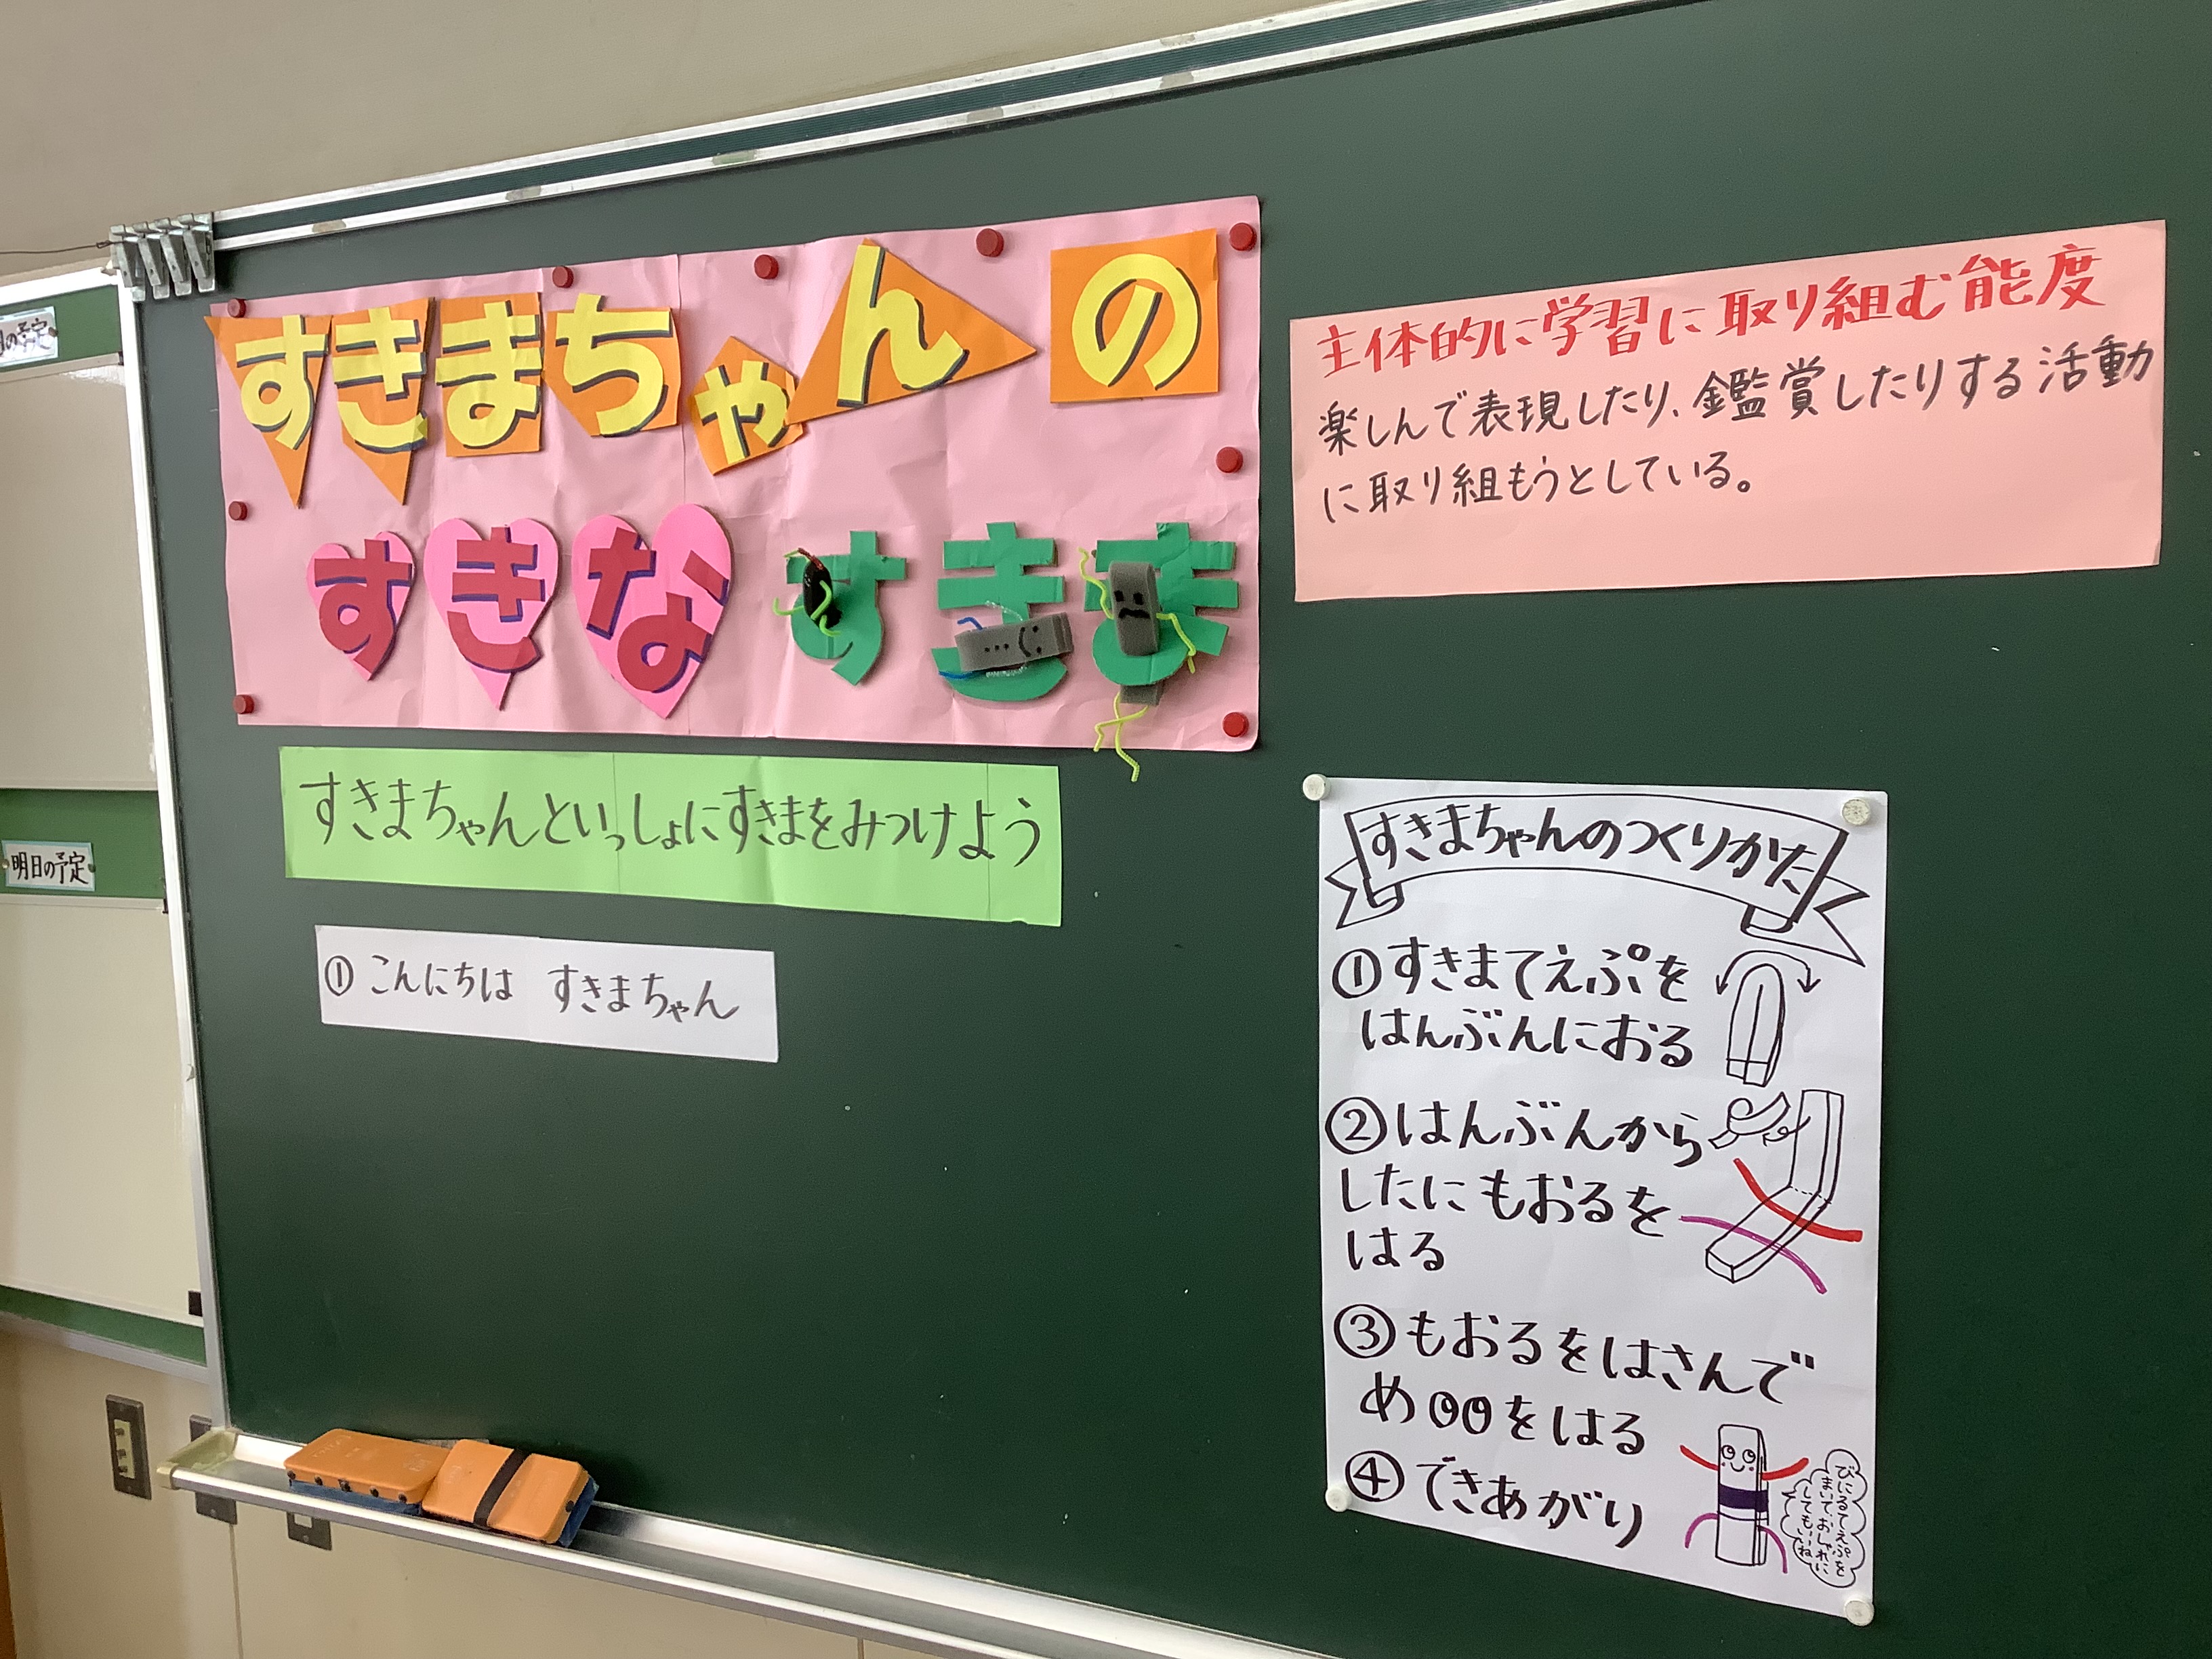 の予定
明日の予定
すきまちゃんの
すきなすきま
すきまちゃんといっしょにすきまをみつけよう
① こんにちは すきまちゃん
主体的に学習に取り組む能度
楽しんで表現したり、鑑賞したりする活動
に取り組もうとしている。
すきまちゃんのつくりかた
①すきまてえぷを
はんぶんにおる
②はんぶんから
したにもおるを
はる
③もおるをはさんで
め をはる
④できあがり
びにるてえぷを
まいて、おしゃれに
してもいいね